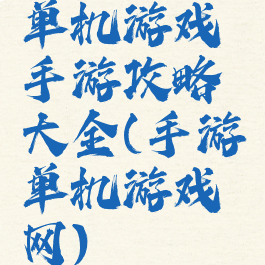 单机游戏
手游攻略
大全(手游
单机游戏
网)